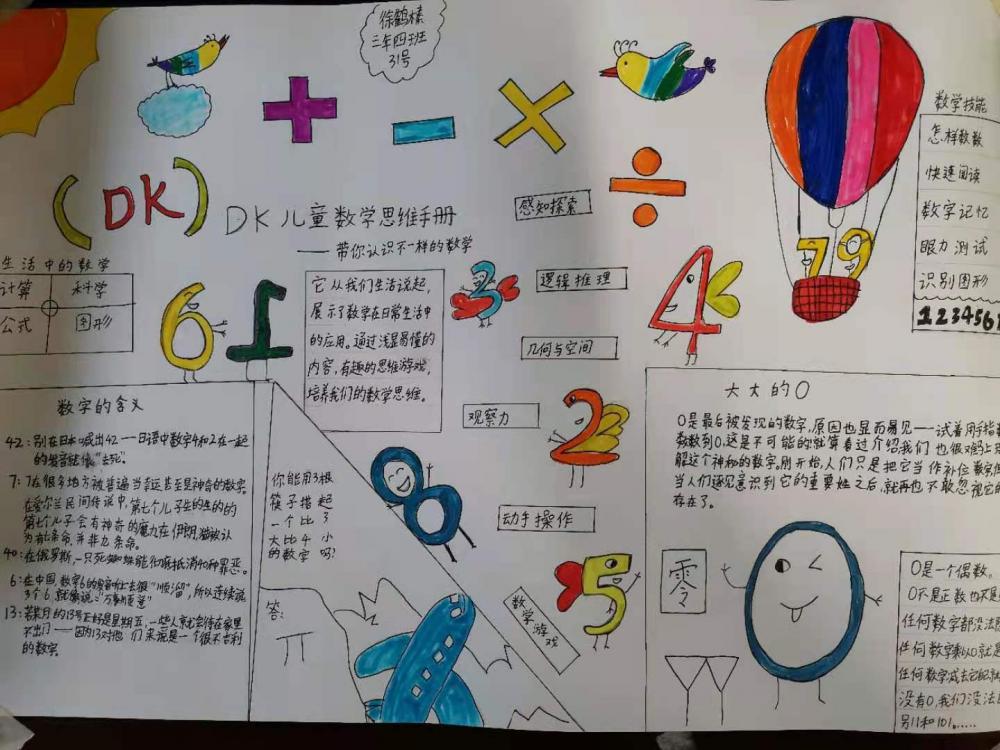 徐鹤榛
三年四班
31号
(DK)
DK儿童数学思维手册
——带你认识不一样的数学
数学技能
怎样数数
快速阅读
数字记忆
眼力测试
识别图形
123456
79
生活中的数学
计算
科学
公式
图形
61
它从我们生活说起,
展示了数学在日常生活中
的应用。通过浅显易懂的
内容,有趣的思维游戏,
培养我们的数学思维。
3
4
感知探索
逻辑推理
几何与空间
观察力
2
动手操作
5
数学游戏
8
数字的含义
42:别在日本喊出42——日语中数字4和2在一起
的发音就像“去死”。
7:7在很多地方被普遍当幸运甚至是神奇的数字。
在爱尔兰民间传说中,第七个儿子生的生的的
第七个儿子会有神奇的魔力在伊朗,猫被认
为有七条命,并非九条命。
40:在俄罗斯,一只死蜘蛛能彻底抵消40种罪恶。
6:在中国,数字6的发音听上去很“顺溜”,所以连续说
3个6,就像说:“万事如意”
13:若某月的13号正好是星期五,一些人就会待在家里
不出门——因为13对他们来说是一个很不吉利
的数字。
你能用3根
筷子搭起
一个比了
大比4小
的数字吗?
答:
大大的0
0是最后被发现的数字,原因也显而易见——试着用手指
数数到0,这是不可能的就算看过介绍我们也很难马上
解这个神秘的数字。刚开始,人们只是把它当作补位数字
当人们逐见意识到它的重要性之后,就再也不敢忽视它
存在了。
零
0是一个偶数。
0不是正数也不是
任何数字都没法
任何数字乘以0就是
任何数字减去它
没有0,我们没法
别11和101......